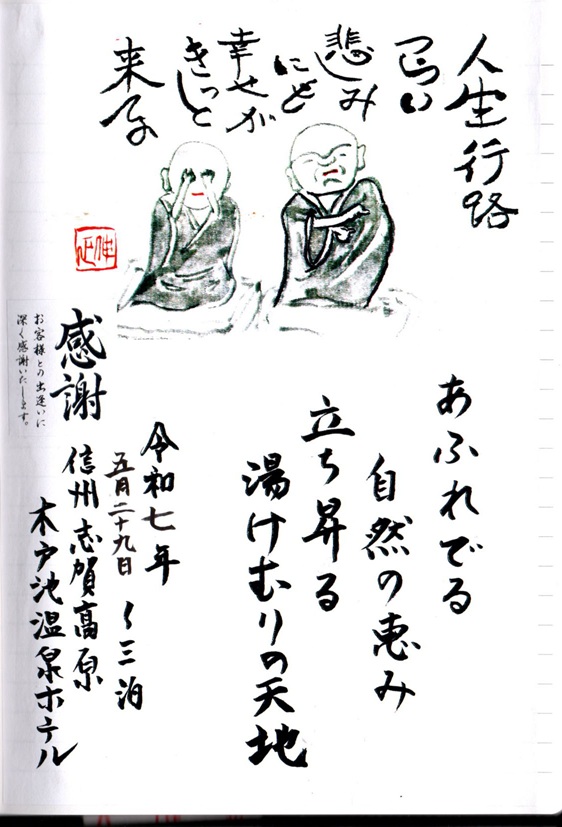 人生行路
つらい
悲しみ
幸せが
きっと
来る
あふれでる
自然の恵み
立ち昇る
湯けむりの天地
令和七年
五月二十九日 〜三泊
信州志賀高原
木戸池温泉ホテル
感謝
お客様との出逢いに
深く感謝いたします。